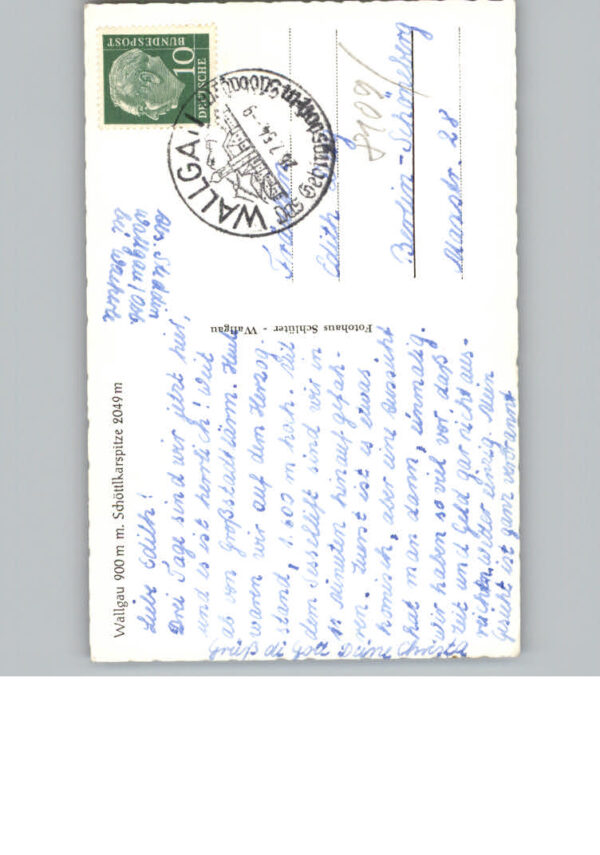 Wallgau 900 m m. Schöttlkarspitze 2049 m
Liebe Edith!
Drei Tage sind wir jetzt hier,
und es ist herrlich! Weit
ab von Großstadtlärm. Heute
waren wir auf dem Herzog-
stand, 1.600 m hoch. Mit
dem Sessellift sind wir in
11 Minuten hinaufgefah-
ren. Zuerst ist es etwas
komisch, aber eine Aussicht
hat man dann, einmalig.
Wir haben so viel vor, daß
Zeit und Geld gar nicht aus-
reichen, leider einzig. Mein
Gesicht ist ganz verbrannt
Grüß di Gott Deine Christa
Fotohaus Schlüter - Wallgau
Abs.
Wallgau/Obb.
bei
DEUTSCHE
BUNDESPOST
10
WALLGAU
26.7.54.-9
Edith
Berlin-Schöneberg
28